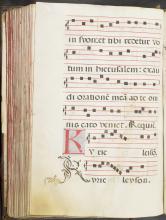 in syon: et tibi redetur vo
tum in hierusalem: exau
di orationē meā ad te om
nis caro veniet. Requiē
Kyrie leiso.
Kyrie leyson.